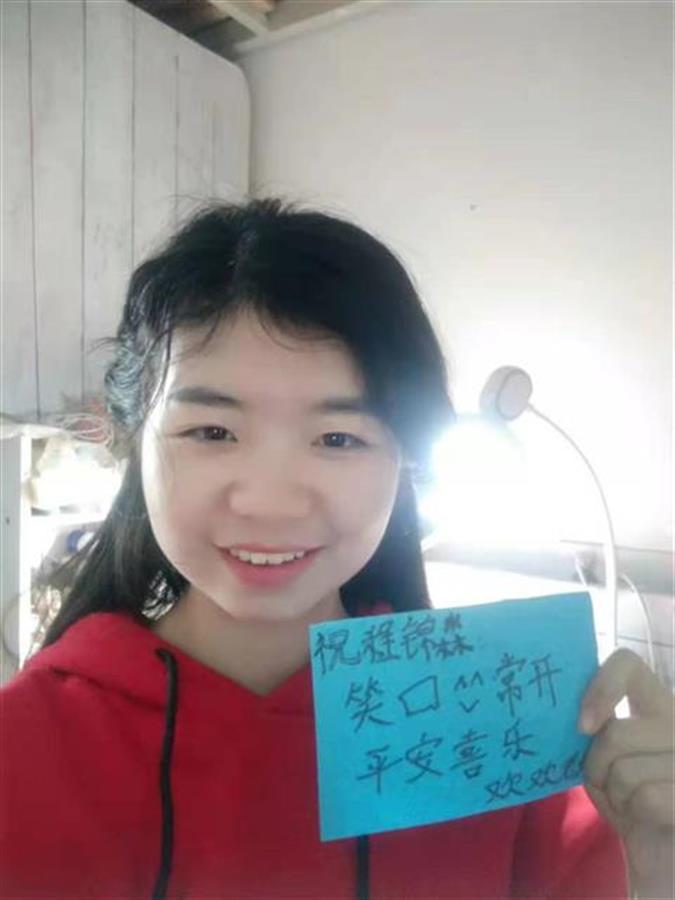 祝程锦淼
笑口^^常开
平安喜乐
欢欢